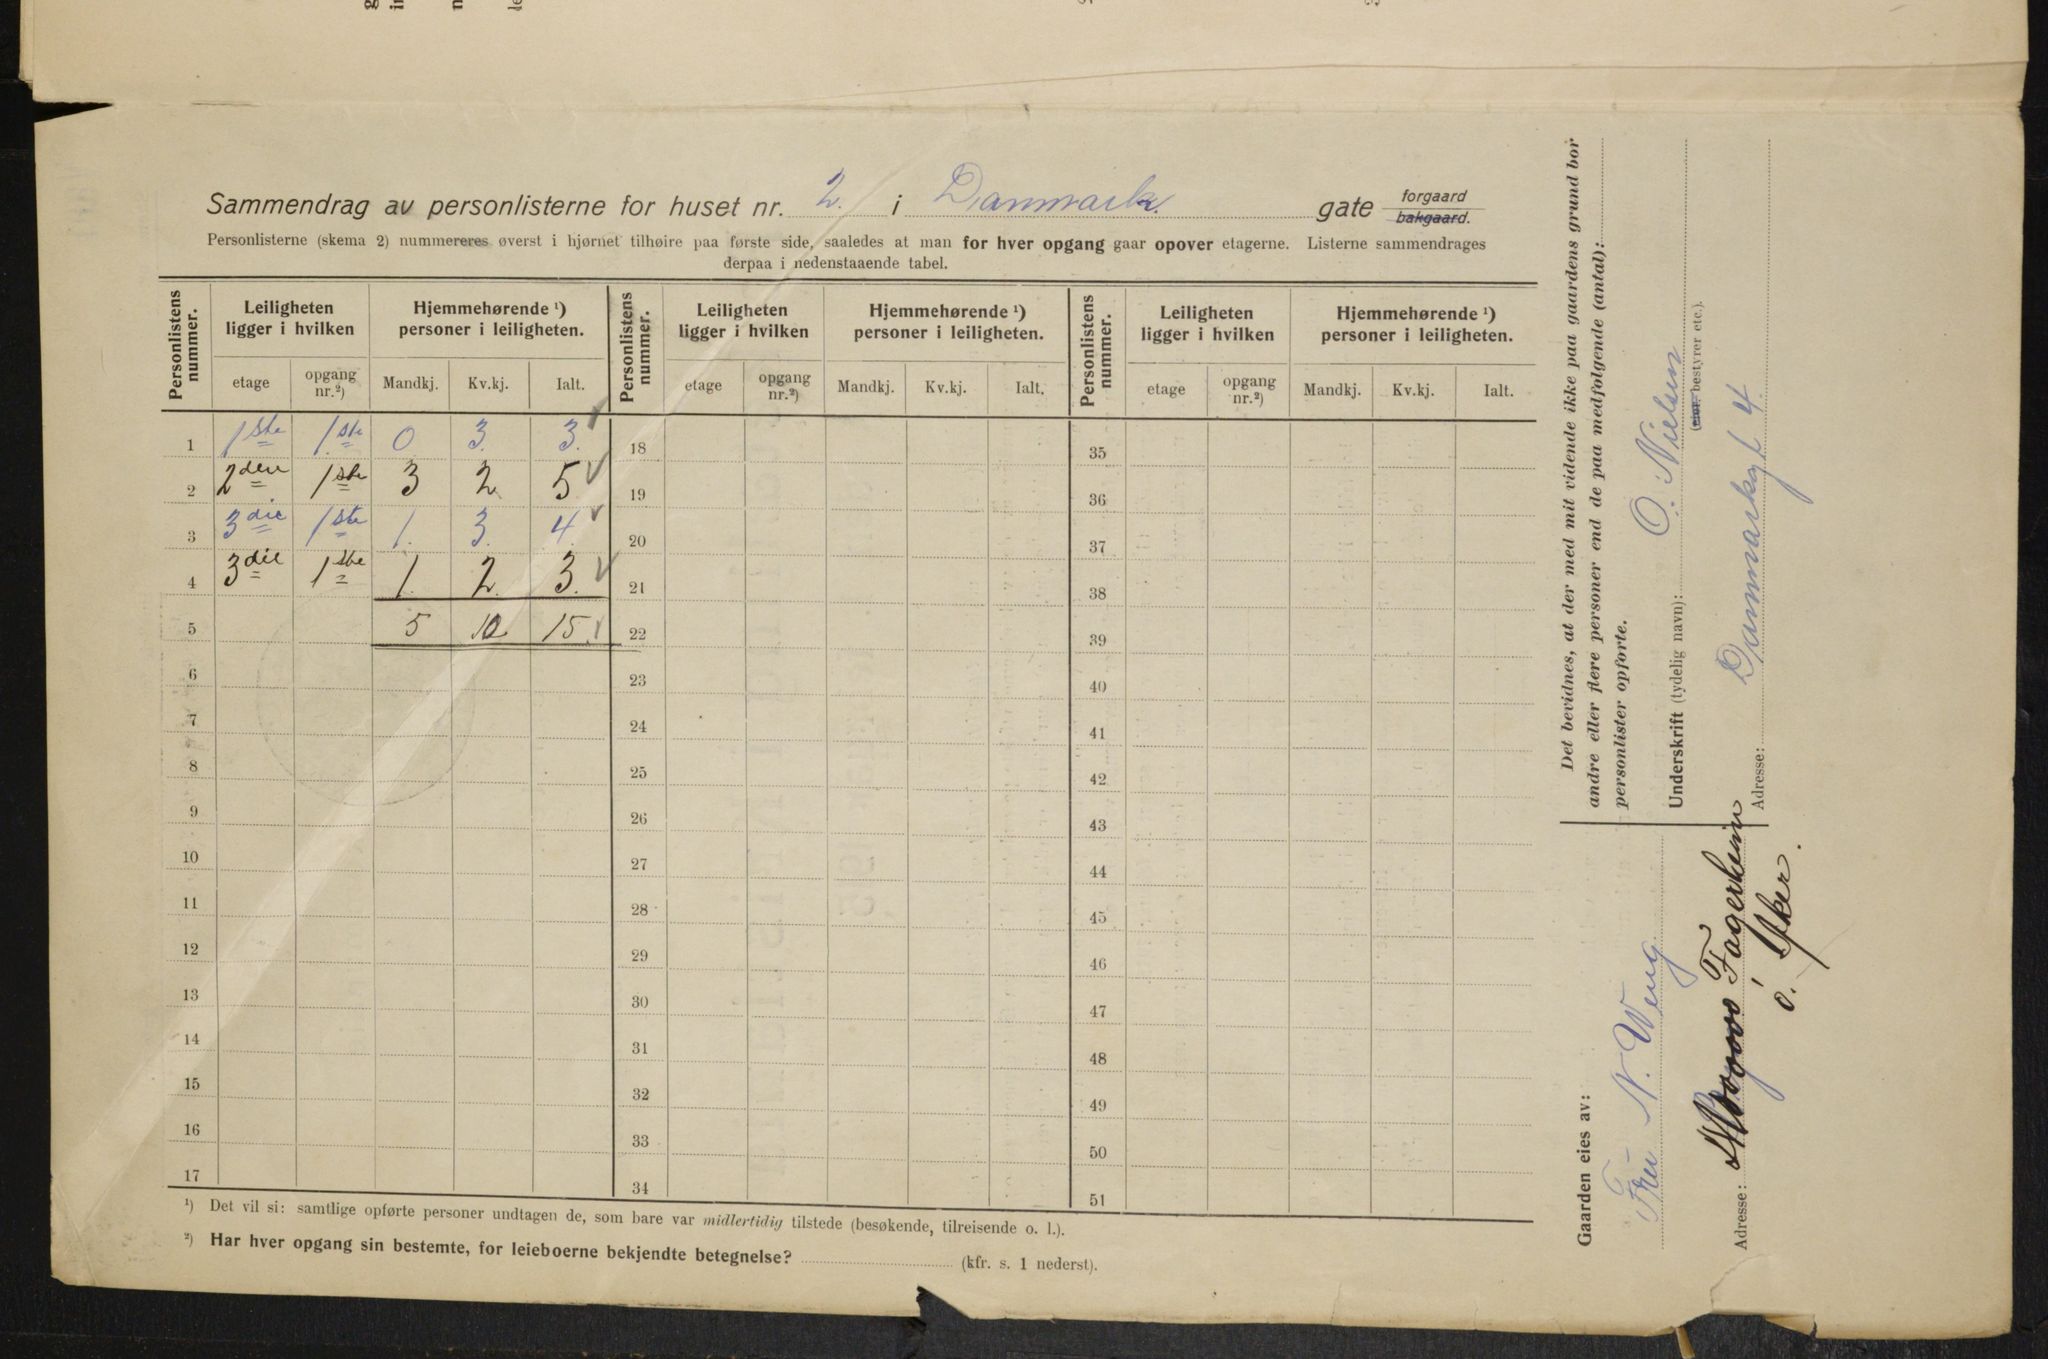 Sammendrag av personlisterne for huset nr. 2. i Danmarks. gate forgaard
bakgaard.
Personlisterne (skema 2) nummereres øverst i hjørnet tilhøire paa første side, saaledes at man for hver opgang gaar opover etagerne. Listerne sammendrages
derpaa i nedenstaaende tabel.
Personlistens nummer. Leiligheten ligger i hvilken Hjemmehørende ¹) personer i leiligheten. Personlistens nummer. Leiligheten ligger i hvilken Hjemmehørende ¹) personer i leiligheten. Personlistens nummer. Leiligheten ligger i hvilken Hjemmehørende ¹) personer i leiligheten.
etage opgang nr.²) Mandkj. Kv.kj. Ialt. etage opgang nr.²) Mandkj. Kv.kj. Ialt. etage opgang nr.²) Mandkj. Kv.kj. Ialt.
1 1ste 1ste 0 3. 3. 18 35
2 2den 1ste 3 2 5 19 36
3 3die 1ste 1. 3. 4. 20 37
4 3die 1ste 1. 2. 3. 21 38
5 5 10 15. 22 39
6 23 40
7 24 41
8 25 42
9 26 43
10 27 44
11 28 45
12 29 46
13 30 47
14 31 48
15 32 49
16 33 50
17 34 51
¹) Det vil si: samtlige opførte personer undtagen de, som bare var midlertidig tilstede (besøkende, tilreisende o. l.).
²) Har hver opgang sin bestemte, for leieboerne bekjendte betegnelse? (kfr. s. 1 nederst).
Det bevidnes, at der med mit vidende ikke paa gaardens grund bor
andre eller flere personer end de paa medfølgende (antal):
personlister opførte.
Underskrift (tydelig navn): O. Nielsen
(eier, bestyrer etc.).
Adresse: Danmarksgt 4.
Gaarden eies av:
Fru N. Weng
Adresse: Fagerheim
i Aker.